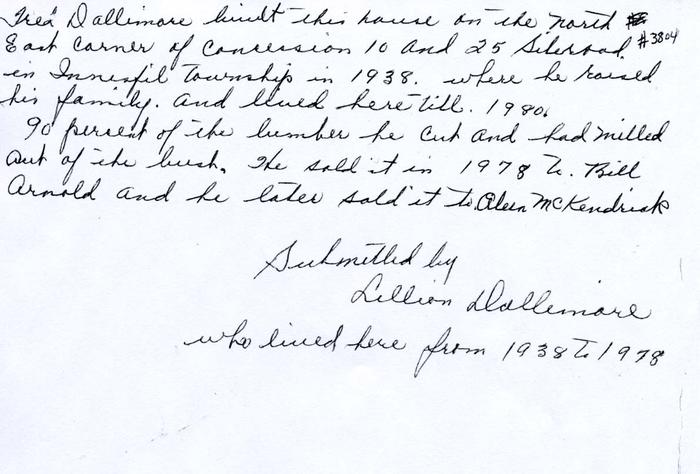 Fred Dallimore built this house on the North
East Corner of Concession 10 and 25 Sideroad. #3804
in Innisfil Township in 1938. where he raised
his family. and lived here till. 1980.
90 percent of the lumber he cut and had milled
out of the bush. He sold it in 1978 to. Bill
Arnold and he later sold it to Aleen McKendrick
Submitted by
Lillian Dallimore
who lived here from 1938 to 1978